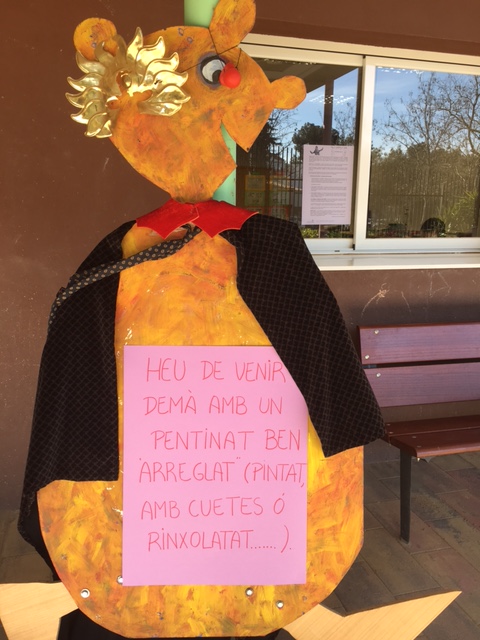 HEU DE VENIR
DEMÀ AMB UN
PENTINAT BEN
"ARREGLAT" (PINTAT,
AMB CUETES Ó
RINXOLATAT......).